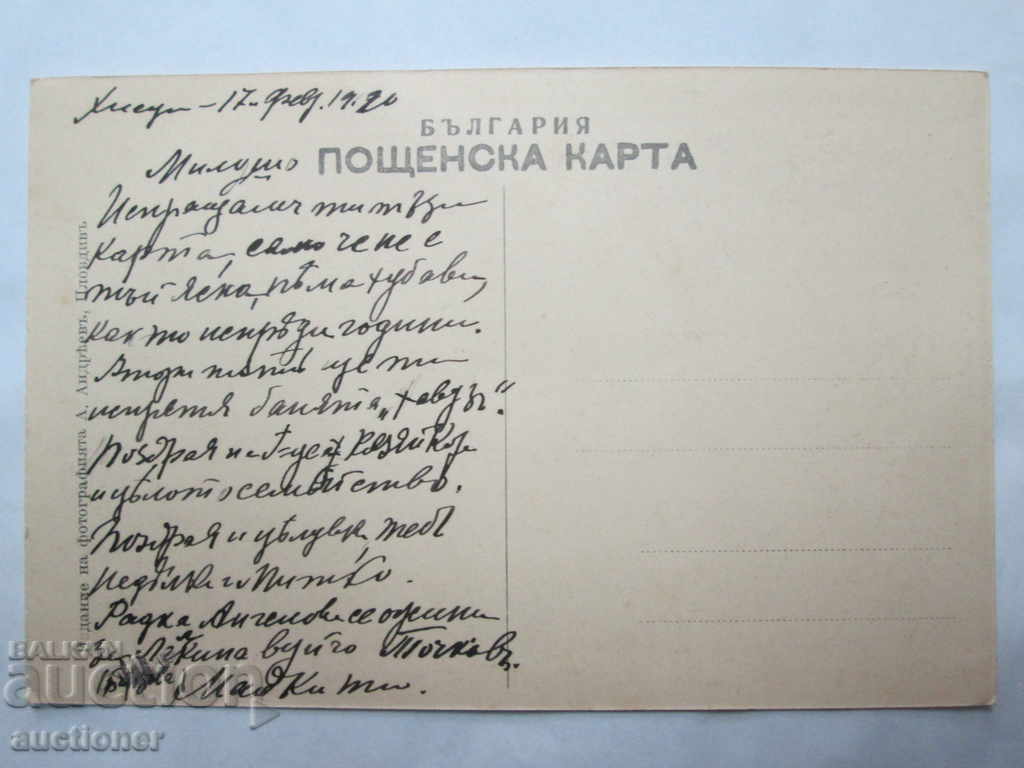 17 февр. 19
БЪЛГАРИЯ
ПОЩЕНСКА КАРТА
Милушо
Испращамъ ти тъзи
карта, само че не е
тъй ясна, нѣма хубави,
както испрѣди години.
Втори пѫть ще ти
испратя банята „Хавузъ".
Поздрав на Г-ца
и цѣлото семейство.
Поздрав и цѣлувки тебѣ
Недѣлка и Митко.
Радка Ангелова се ожени
за вуйчо Точковъ.
Майка ти.
Издание на фотографията А. Андрѣевъ, Пловдивъ
BALKAN
auction
auctioner